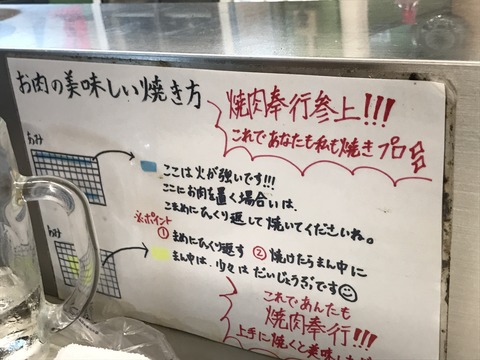 お肉の美味しい焼き方
焼肉奉行参上!!!
これであなたも私も焼きプロ
あみ
ここは火が強いです!!!
ここにお肉を置く場合いは、
こまめにひっくり返して焼いてくださいね。
※ポイント
① まめにひっくり返す ② 焼けたらまん中に
あみ
まん中は、少々は だいじょうぶです
これであんたも
焼肉奉行!!!
上手に焼くと美味し